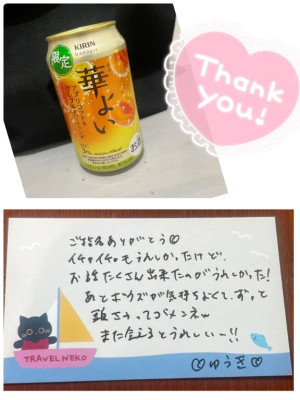 限定
KIRIN
華よい
Thank
you!
ご指名ありがとう♡
イチャイチャもうれしかったけど、
お話たくさん出来たのがうれしかった!
あとボウズが気持ちよくて、ずっと
触ちゃってゴメンネw
また会えるとうれしいー!!
♡ゆうき♡
TRAVEL NEKO